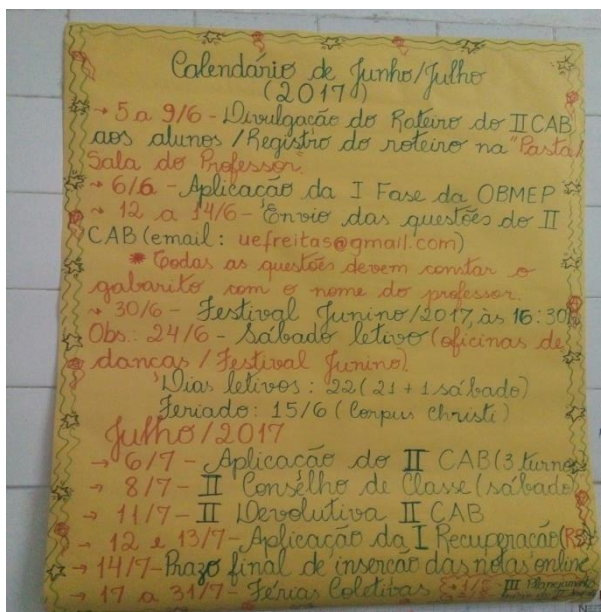 Calendário de Junho/Julho
(2017)
→ 5 a 9/6 - Divulgação do Roteiro do II CAB
aos alunos / Registro do roteiro na "Pasta/
Sala do Professor".
→ 6/6 - Aplicação da I Fase da OBMEP
→ 12 a 14/6 - Envio das questões do II
CAB (email: uefreitas@gmail.com)
* Todas as questões devem constar o
gabarito com o nome do professor.
→ 30/6 - Festival Junino/2017, às 16:30
Obs.: 24/6 - Sábado letivo (oficinas de
danças / Festival Junino)
Dias letivos: 22 (21 + 1 sábado)
Feriado: 15/6 (Corpus Christi)
Julho/2017
→ 6/7 - Aplicação do II CAB (3 turnos
→ 8/7 - II Conselho de Classe (sábado)
→ 11/7 - II Devolutiva II CAB
→ 12 e 13/7 - Aplicação da I Recuperação
→ 14/7 - Prazo final de inserção das notas online
→ 17 a 31/7 - Férias Coletivas III